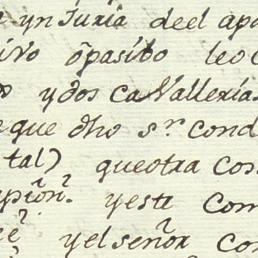 e ynJuria de el apo
ivo õpasito leo
ydos CaVallerias
e que dho sr. cond
tal) que otra Cos
pción? y esta Com
y el señor Con